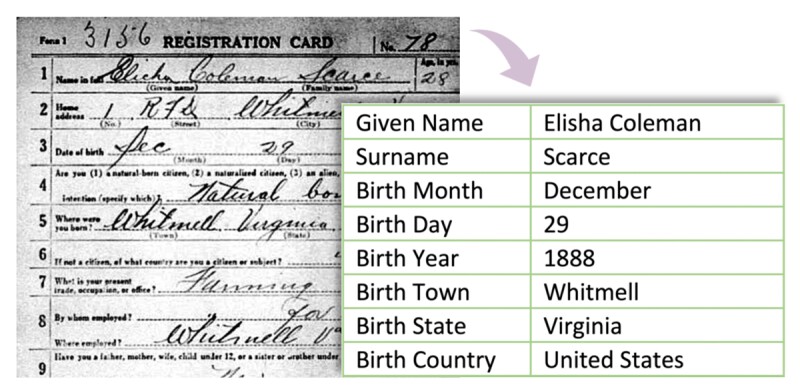 Form 1 3156 REGISTRATION CARD No. 78
1 Name in full Elisha Coleman Scarce Age, in yrs. 28
(Given name) (Family name)
2 Home address 1 RFD Whitmell
(No.) (Street) (City)
3 Date of birth Dec 29
(Month) (Day)
Are you (1) a natural-born citizen, (2) a naturalized citizen, (3) an alien,
4 intention (specify which)? Natural bor
5 Where were you born? Whitmell Virginia
(Town) (State)
6 If not a citizen, of what country are you a citizen or subject?
7 What is your present trade, occupation, or office? Farming
8 By whom employed? for
Where employed? Whitmell Va
9 Have you a father, mother, wife, child under 12, or a sister or brother under
Given Name Elisha Coleman
Surname Scarce
Birth Month December
Birth Day 29
Birth Year 1888
Birth Town Whitmell
Birth State Virginia
Birth Country United States